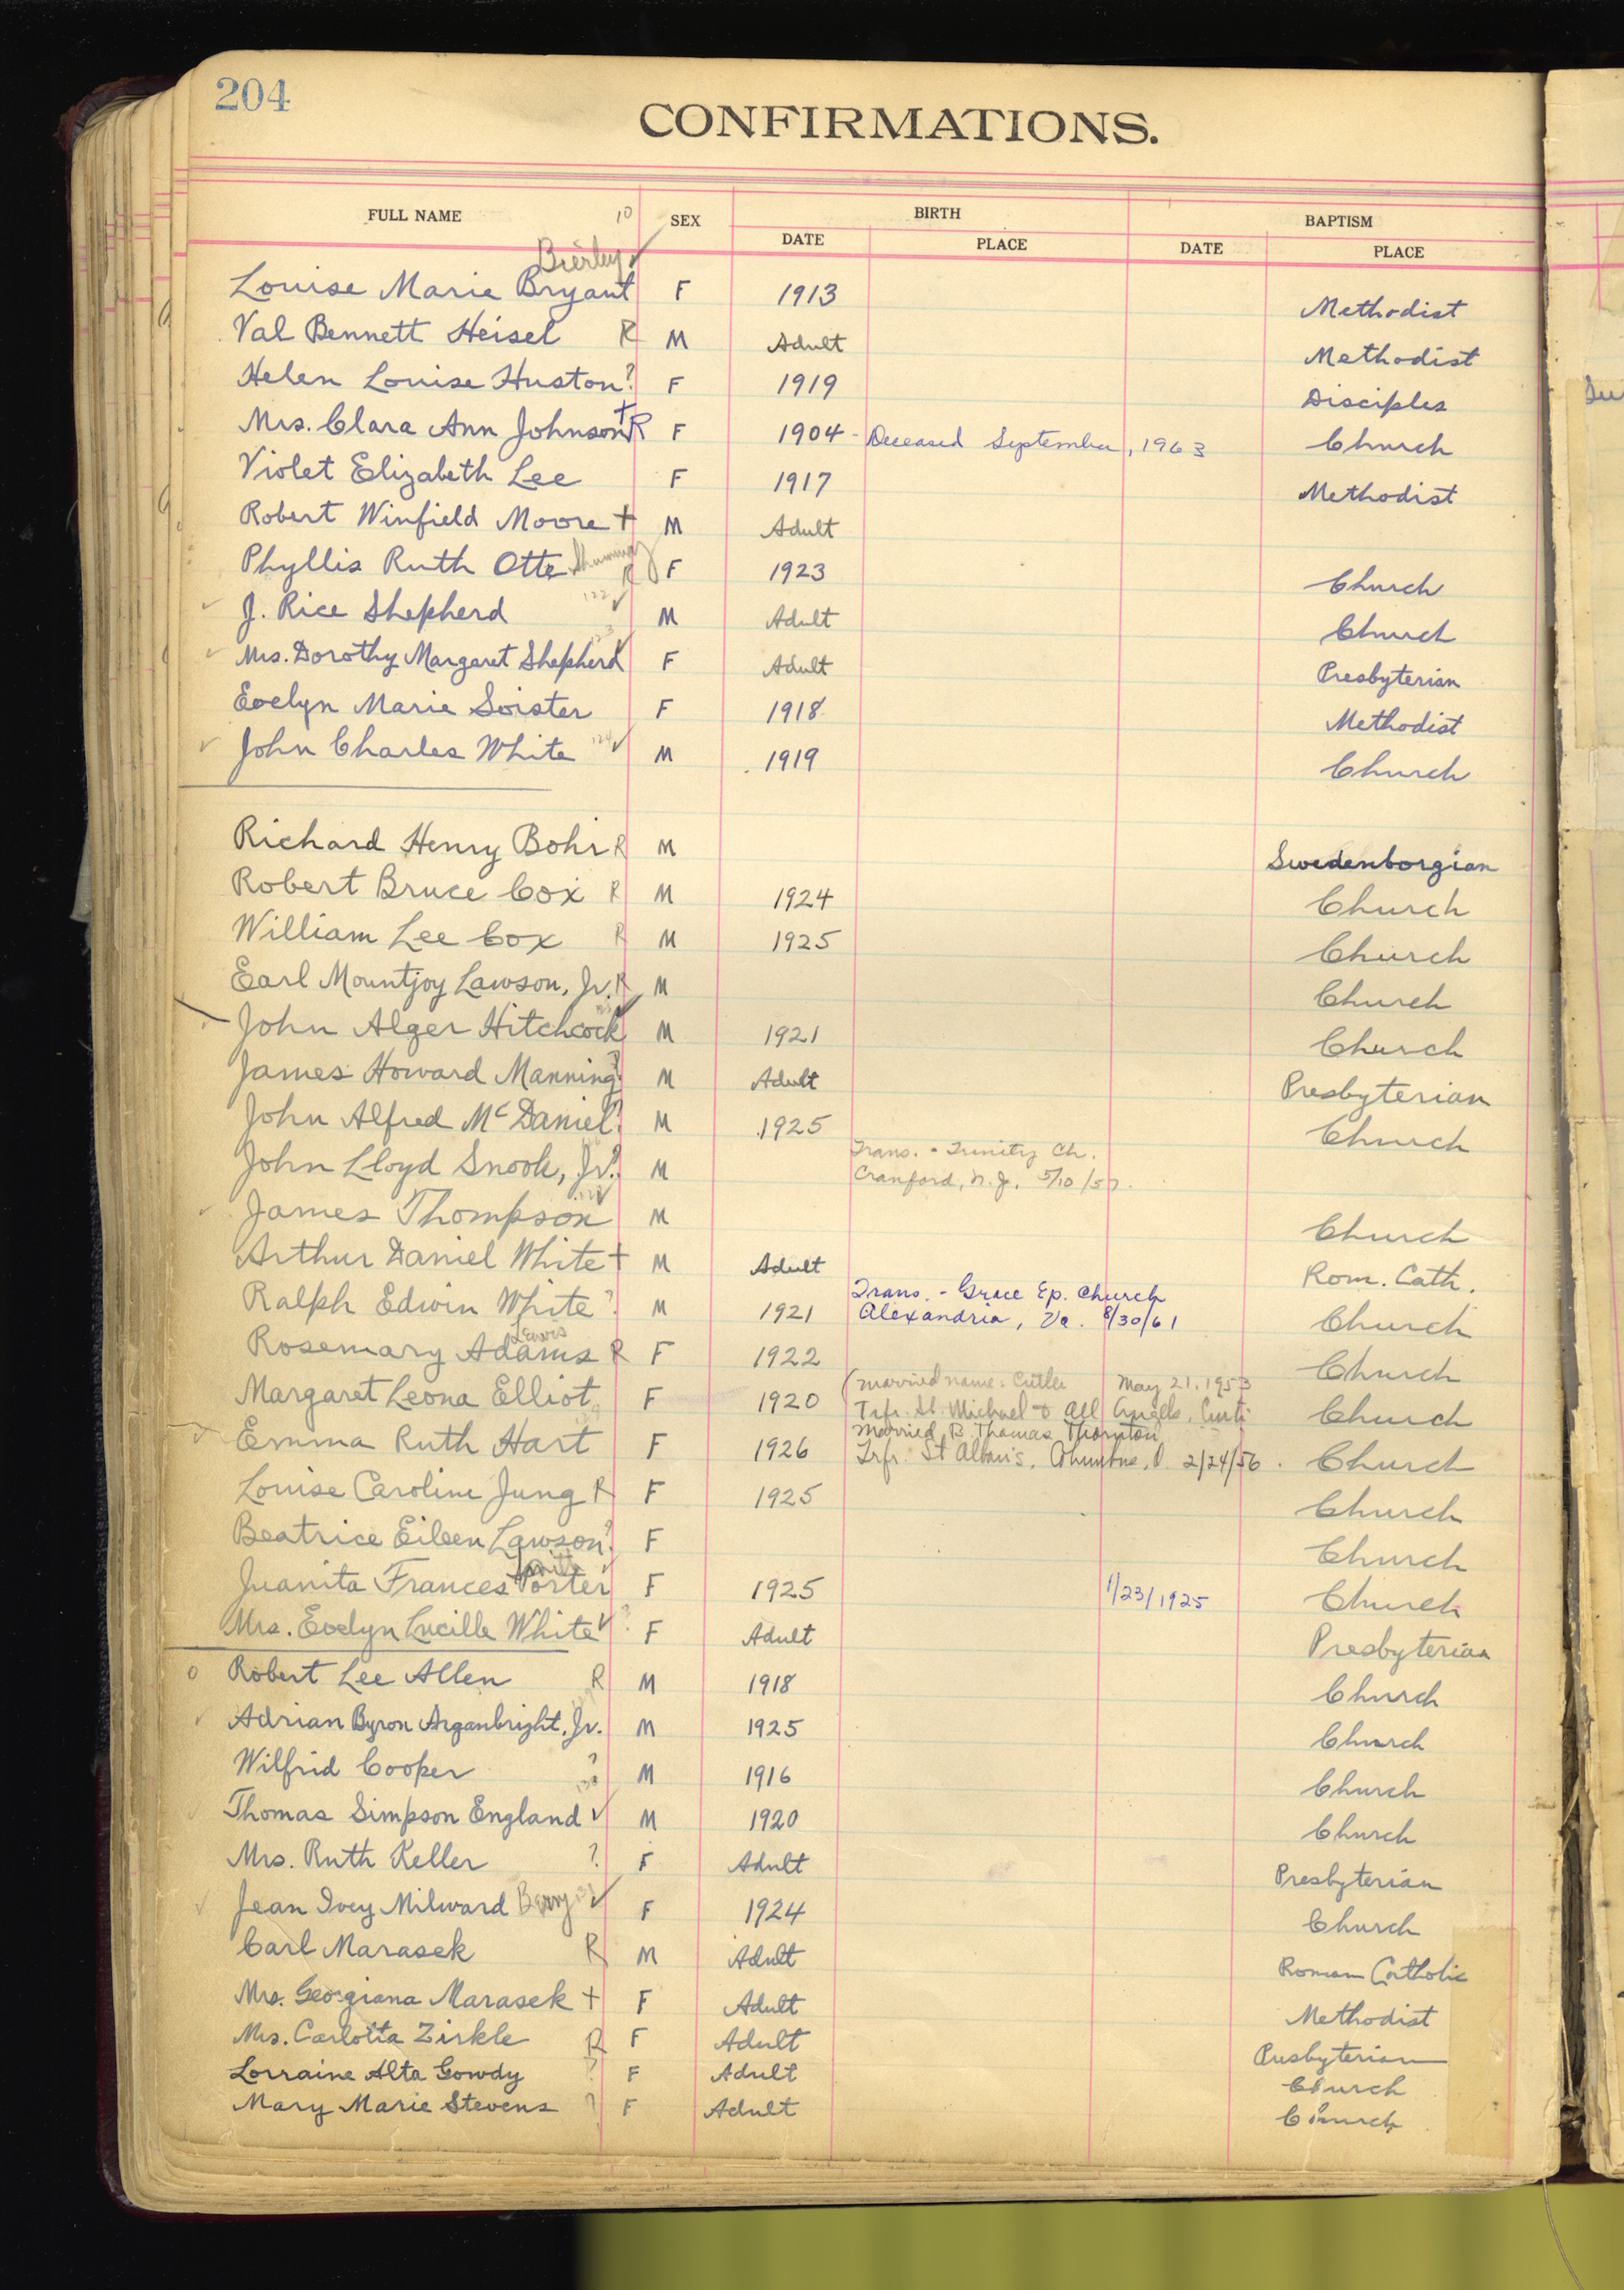 204
CONFIRMATIONS.
FULL NAME 10 SEX BIRTH BAPTISM
DATE PLACE DATE PLACE
Brerley ✓
Louise Marie Bryant F 1913 Methodist
Val Bennett Heisel R M Adult Methodist
Helen Louise Huston ? F 1919 Disciples
Mrs. Clara Ann Johnson + R F 1904 - Deceased September, 1963 Church
Violet Elizabeth Lee F 1917 Methodist
Robert Winfield Moore + M Adult
Phyllis Ruth Otte R F 1923 Church
✓ J. Rice Shepherd 122 ✓ M Adult Church
✓ Mrs. Dorothy Margaret Shepherd ✓ F Adult Presbyterian
Evelyn Marie Soister F 1918 Methodist
✓ John Charles White 124 ✓ M 1919 Church
Richard Henry Bohr R M Swedenborgian
Robert Bruce Cox R M 1924 Church
William Lee Cox R M 1925 Church
Earl Mountjoy Lawson, Jr. R M Church
John Alger Hitchcock ✓ M 1921 Church
James Howard Manning ? M Adult Presbyterian
John Alfred McDaniel ? M 1925 Church
Trans. - Trinity Ch.
John Lloyd Snook, Jr. ? M Cranford, N.J. 5/10/57.
✓ James Thompson ✓ M Church
Arthur Daniel White + M Adult Rom. Cath.
Trans. - Grace Ep. Church
Ralph Edwin White ? M 1921 Alexandria, Va. 8/30/61 Church
Lewis
Rosemary Adams R F 1922 Church
(Married name. Cutler May 21, 1953
Margaret Leona Elliot F 1920 Trfr. St. Michael & All Angels, Cinti Church
Married B. Thomas Thornton
✓ Emma Ruth Hart F 1926 Trfr. St Alban's, Columbus, O. 2/24/56. Church
Louise Caroline Jung R F 1925 Church
Beatrice Eileen Lawson ? F Church
Smith
Juanita Frances Porter ✓ F 1925 1/23/1925 Church
Mrs. Evelyn Lucille White ✓ ? F Adult Presbyterian
o Robert Lee Allen R M 1918 Church
✓ Adrian Byron Arganbright, Jr. M 1925 Church
Wilfrid Cooper ? M 1916 Church
130
Thomas Simpson England ✓ M 1920 Church
Mrs. Ruth Keller ? F Adult Presbyterian
✓ Jean Ivey Milward Berry 131 ✓ F 1924 Church
Carl Marasek R M Adult Roman Catholic
Mrs. Georgiana Marasek + F Adult Methodist
Mrs. Carlotta Zirkle R F Adult Presbyterian
Lorraine Alta Gowdy ? F Adult Church
Mary Marie Stevens ? F Adult Church